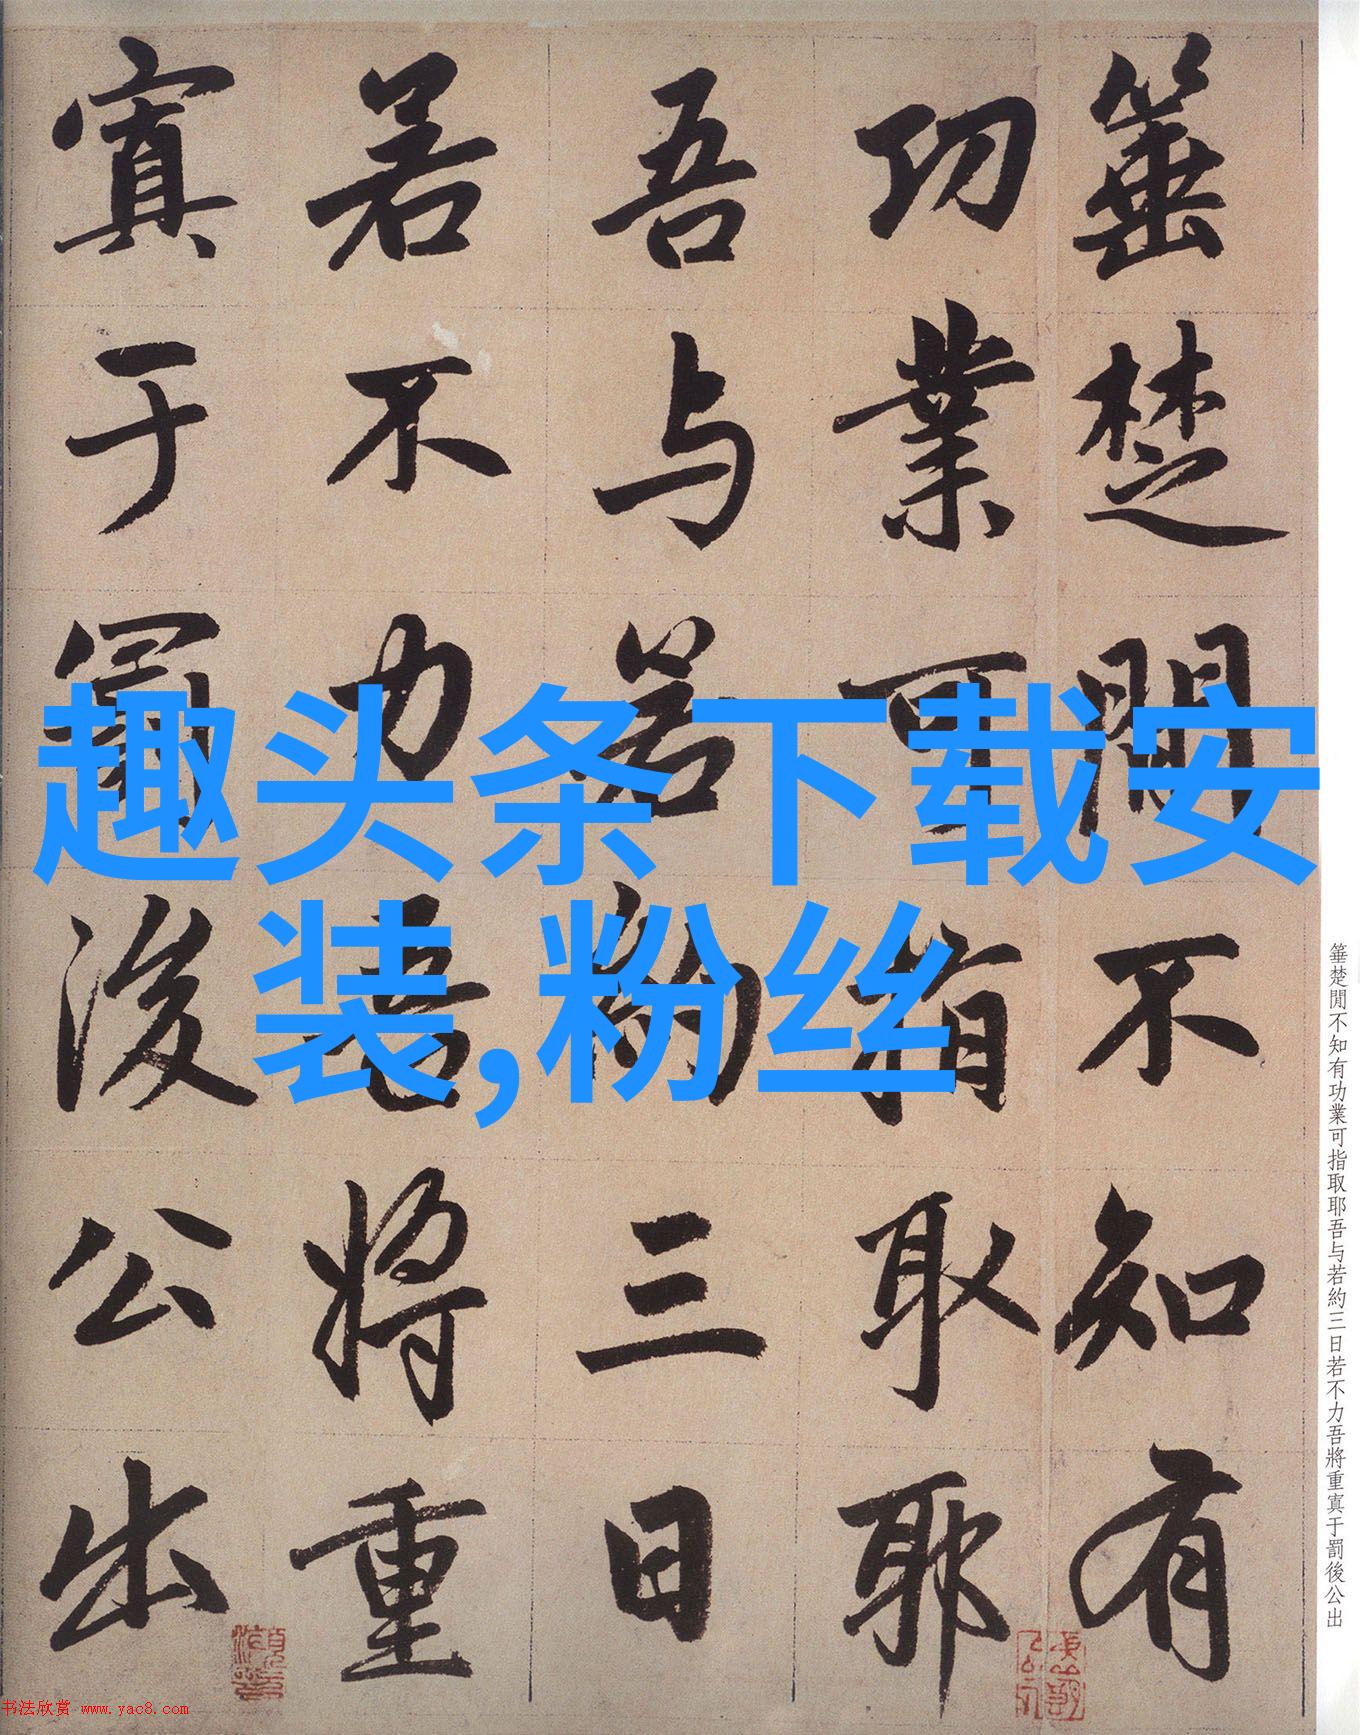 箠楚閒不知有
功業可指取耶
吾与若約三日
若不力吾將重
寘于罰後公出
趣头条下载安
装,粉丝
箠楚閒不知有功業可指取耶吾与若約三日若不力吾將重寘于罰後公出
书法欣赏 www.yac8.com